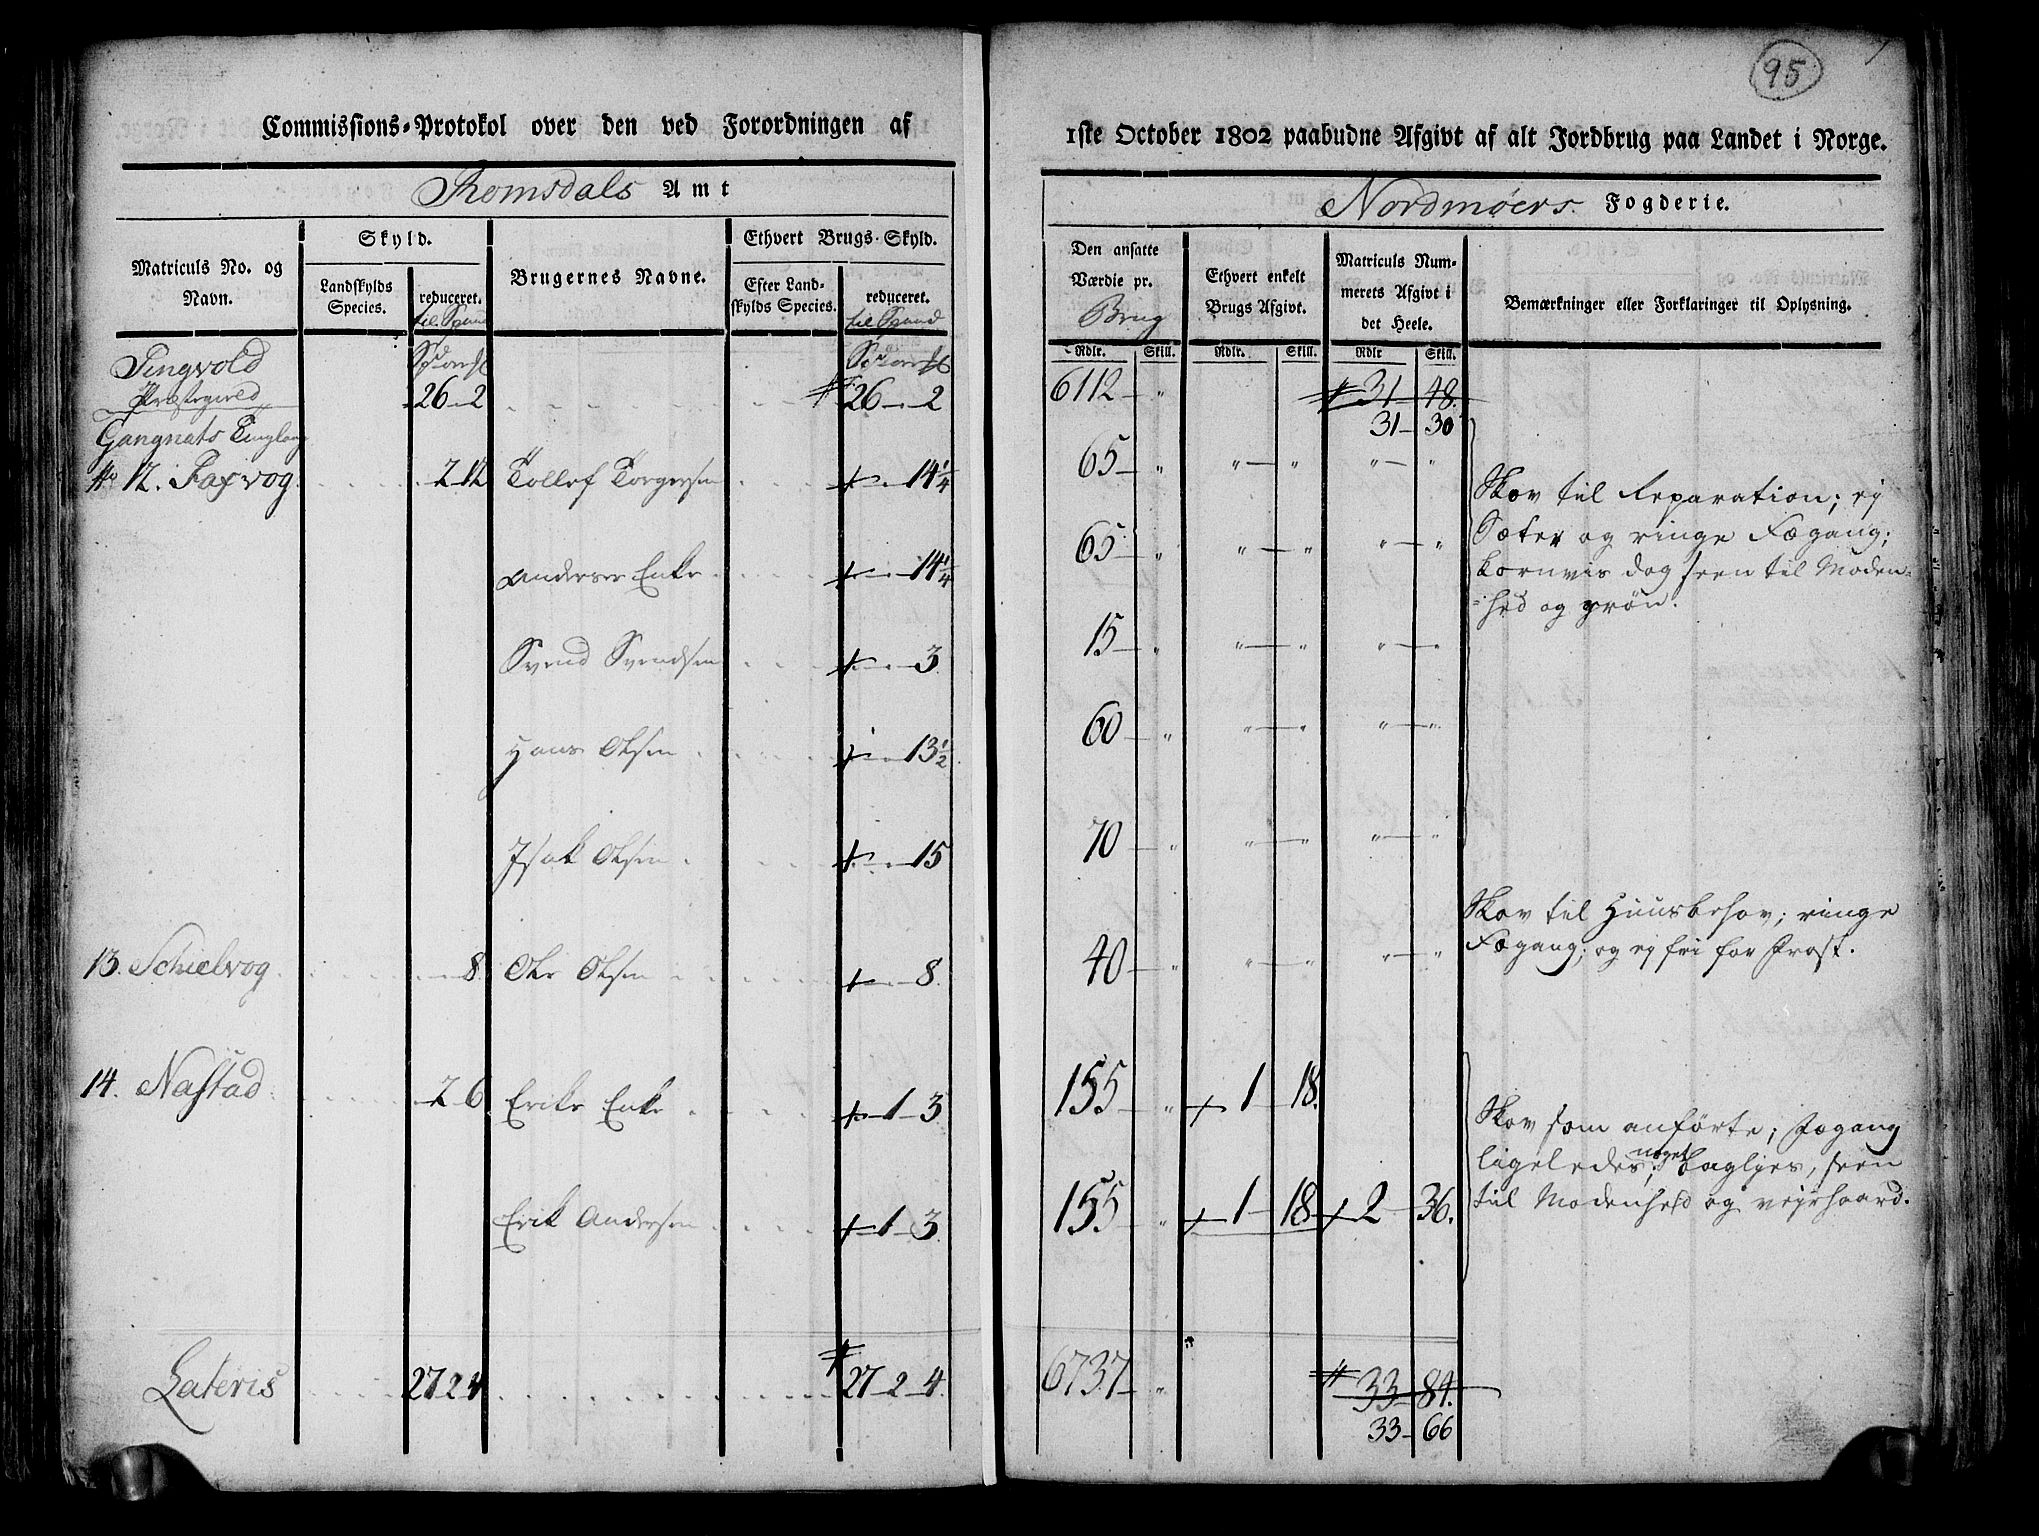 95
Commissions-Protokol over den ved Forordningen af
1ste October 1802 paabudne Afgivt af alt Jordbrug paa Landet i Norge.
Romsdals Amt
Nordmøers. Fogderie.
Matriculs No. og Navn.
Skyld.
Landskylds Species.
reduceret. til Spand
Brugernes Navne.
Ethvert Brugs-Skyld.
Efter Landskylds Species.
reduceret. til Spand
Den ansatte Værdie pr. Brug
Ethvert enkelt Brugs Afgivt.
Matriculs Nummerets Afgivt i det Heele.
Bemærkninger eller Forklaringer til Oplysning.
Rdlr. Skill. Rdlr. Skill. Rdlr Skill.
Tingvold
Præstegield 26 - 2 26 - 2 6112 - " 31 - 48.
31 - 30
Gangnats Tinglaug
No 12. Faxvog. 2 12 Tollef Torgersen 14 1/4 65 - " " - " " - "
Anderses Enke 14 1/4 65 - " " - " " - "
Svend Svendsen 3. 15 - " " - " " - "
Hans Olsen 13 1/2 60 - " " - " " - "
Isak Olsen 15 70 - " " - " " - "
Skov til Reparation; ej
Sæter og ringe Fægang;
kornvis dog seen til Moden-
=hed og grøn.
13. Schielvog 8. Ole Olsen 8. 40 - " " - " " - "
Skov til Huusbehov; ringe
Fægang; og ej fri for Frost.
14. Nastad 2 6 Eriks Enke 1 - 3 155 - " 1 18.
Erik Andersen 1 - 3. 155 - " 1 - 18 2 - 36.
Skov som anførte; Fægang
ligeledes, noget baglies, seen
til Modenhed og vejrhaard.
Lateris 27 2 4 27 - 2 - 4. 6737 - " 33 - 84.
33 - 66